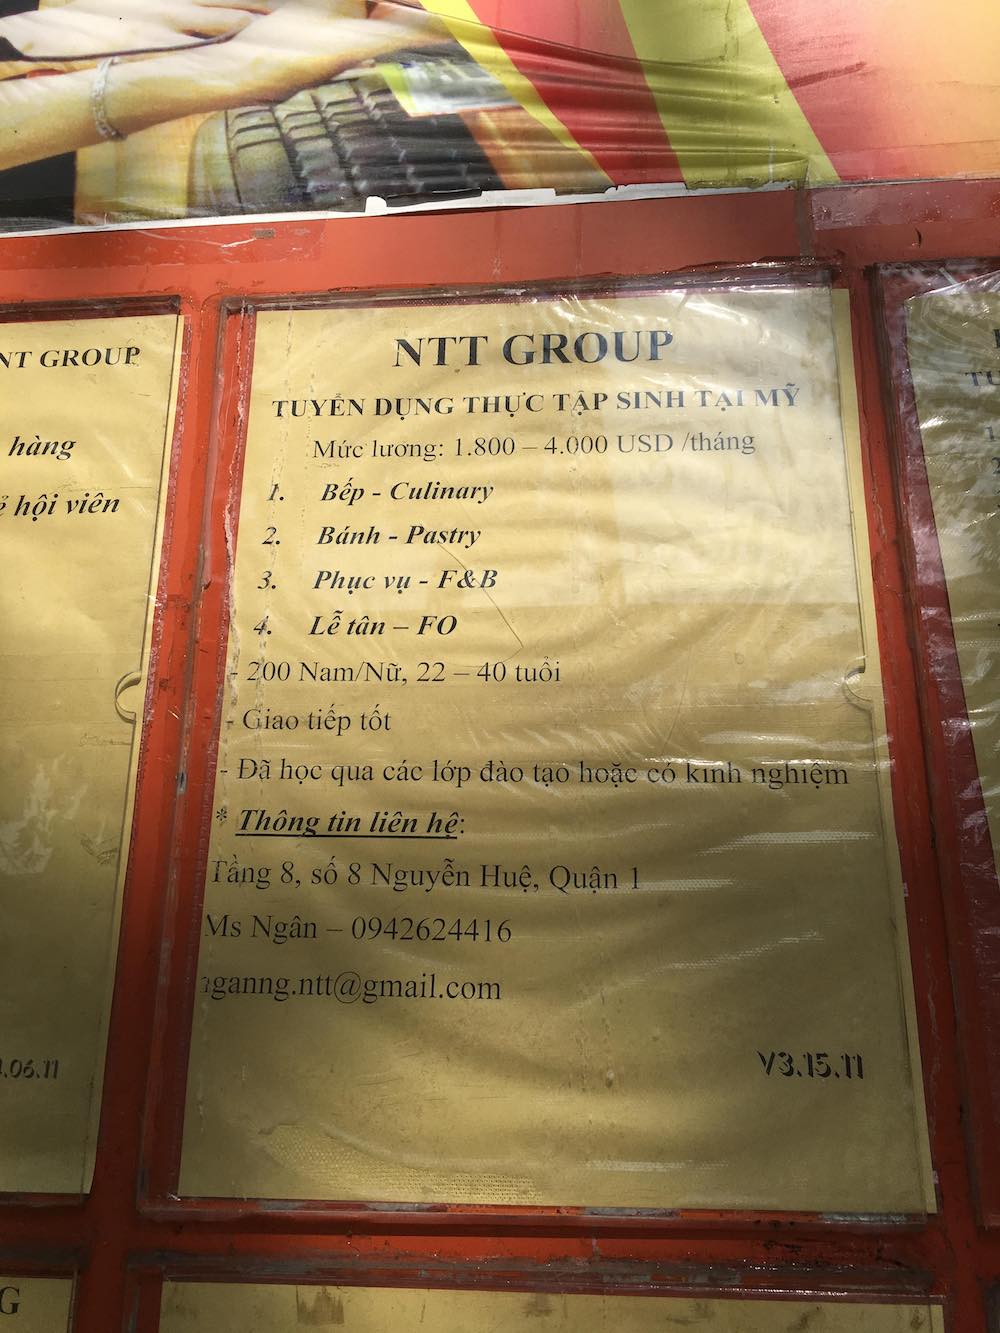 NT GROUP
hàng
hội viên
.06.11
NTT GROUP
TUYỂN DỤNG THỰC TẬP SINH TẠI MỸ
Mức lương: 1.800 – 4.000 USD /tháng
1. Bếp - Culinary
2. Bánh - Pastry
3. Phục vụ - F&B
4. Lễ tân – FO
- 200 Nam/Nữ, 22 – 40 tuổi
- Giao tiếp tốt
- Đã học qua các lớp đào tạo hoặc có kinh nghiệm
* Thông tin liên hệ:
Tầng 8, số 8 Nguyễn Huệ, Quận 1
Ms Ngân – 0942624416
nganng.ntt@gmail.com
V3.15.11
TU
G